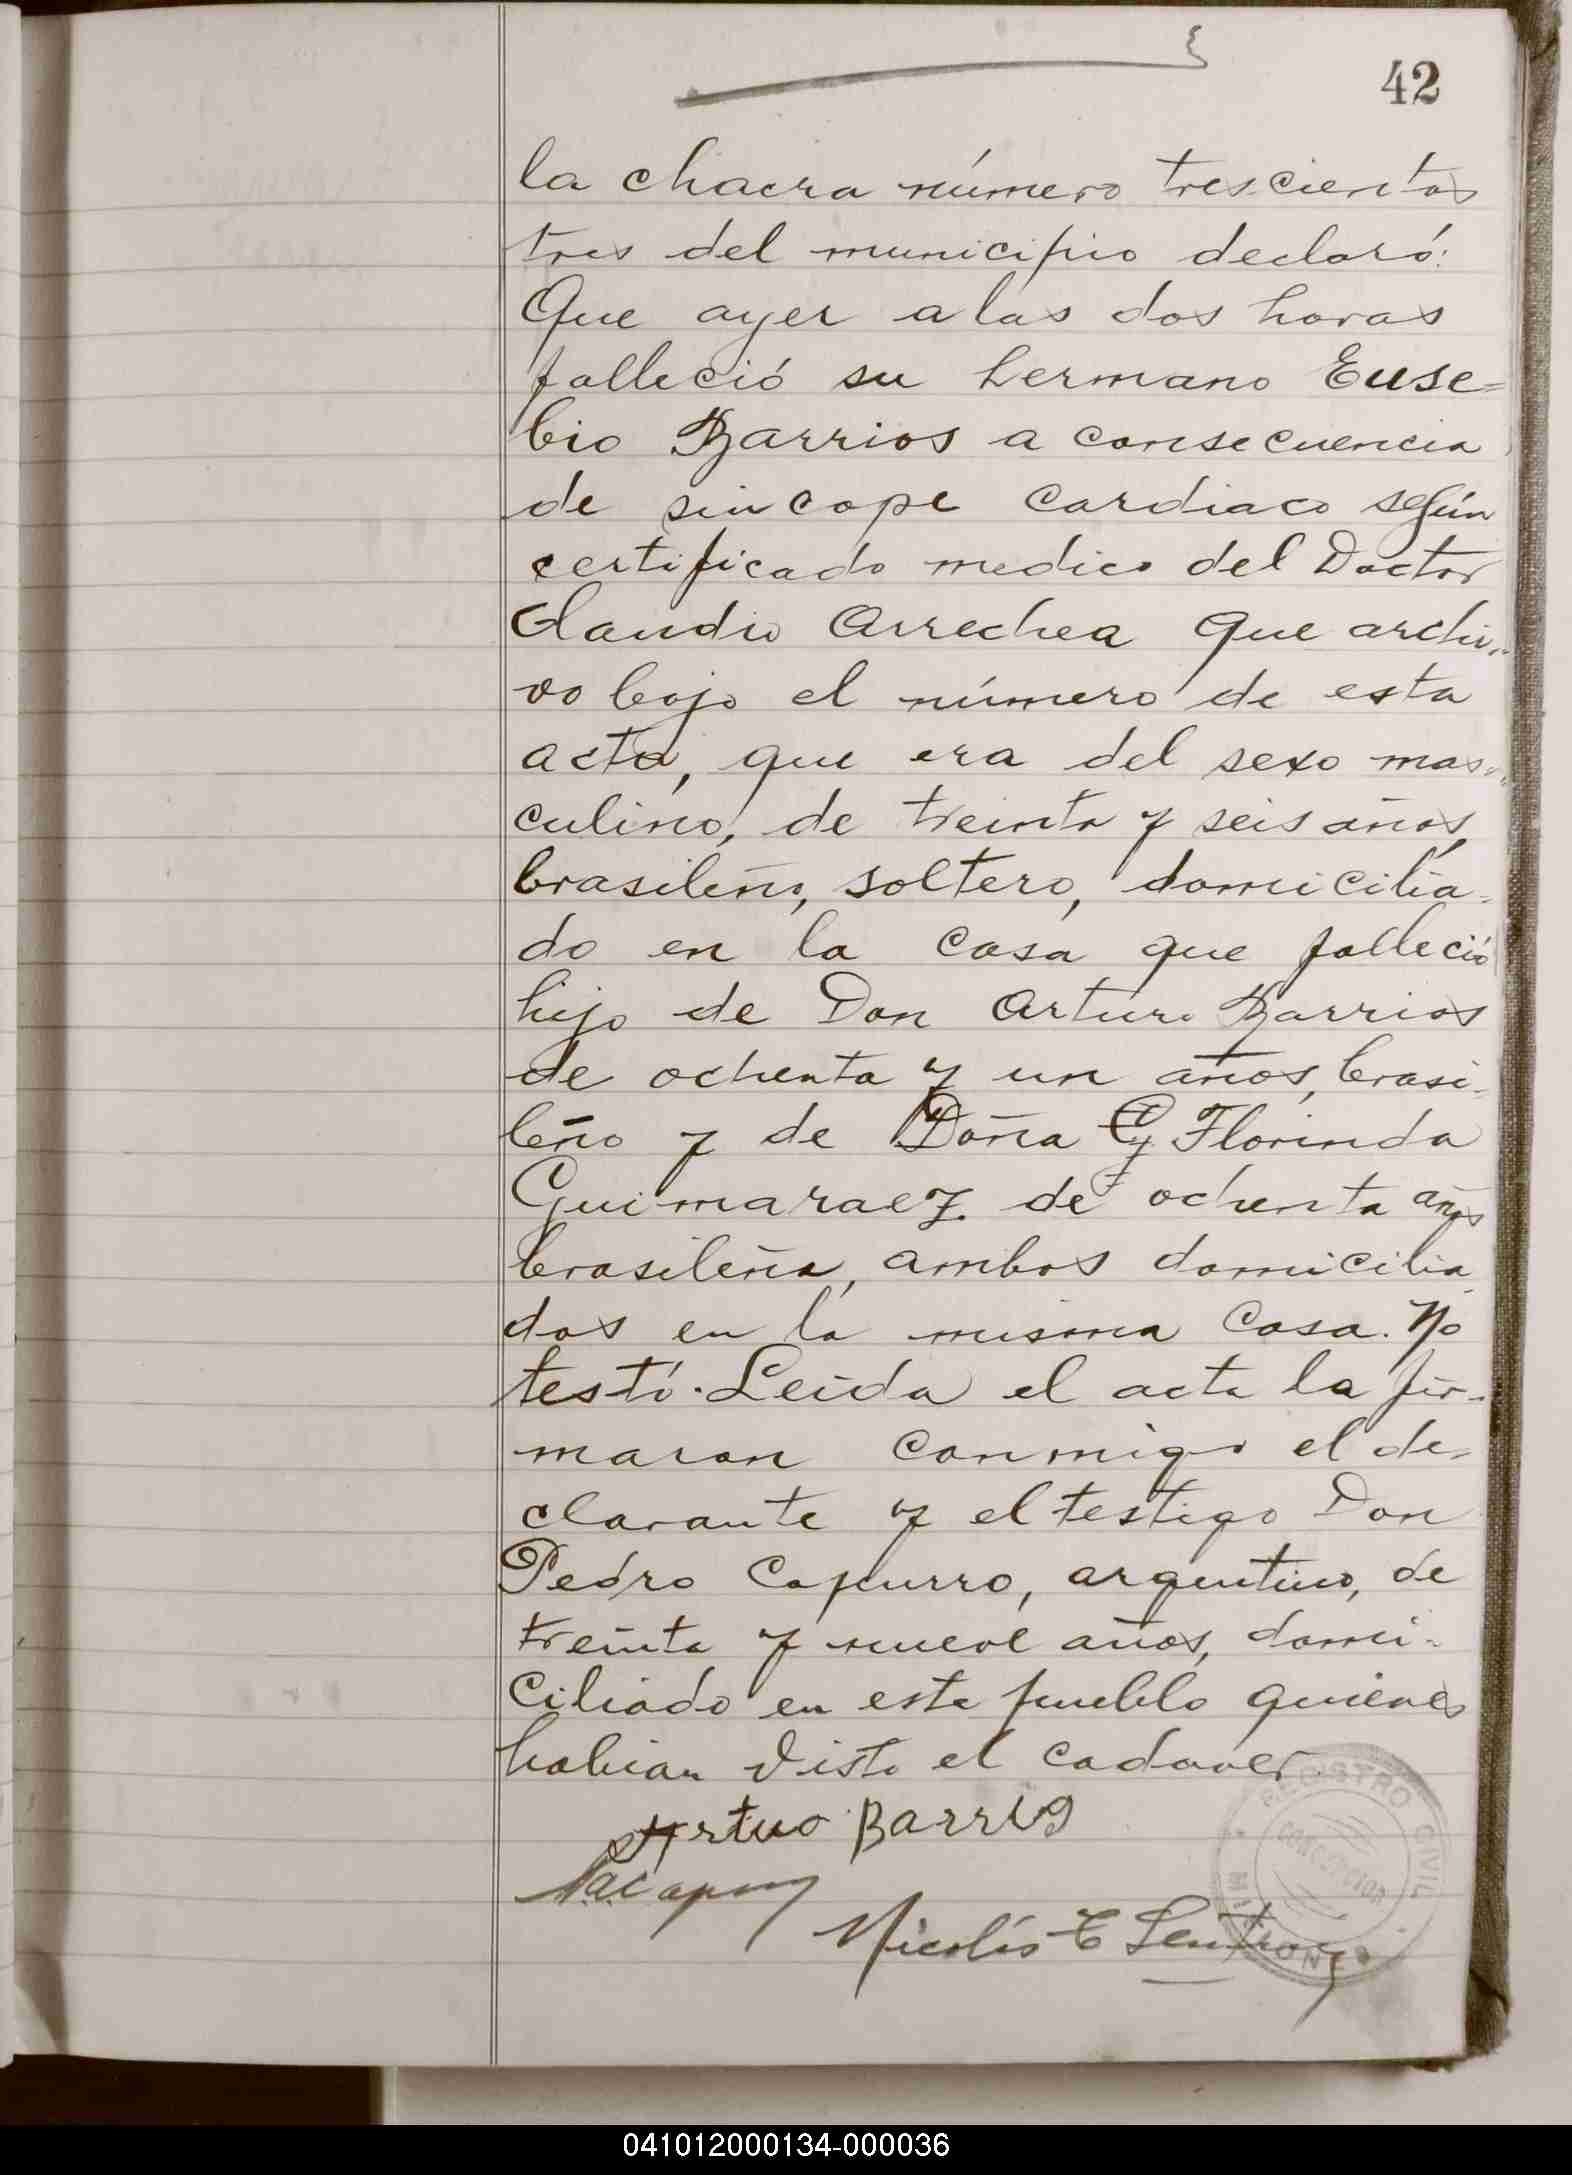 42
la chacra número trescientos
tres del municipio declaró:
Que ayer a las dos horas
falleció su hermano Euse=
bio Barrios a consecuencia
de sincope cardiaco según
certificado medico del Doctor
Claudio Arrechea que archi-
vo bajo el número de esta
acta, que era del sexo mas-
culino, de treinta y seis años,
brasileño, soltero, domicilia-
do en la casa que falleció
hijo de Don Arturo Barrios
de ochenta y un años, brasi-
leño y de Doña Florinda
Guimaraez de ochenta años
brasileña, ambos domicilia
dos en la misma casa. No
testó. Leida el acta la fir-
maron conmigo el de-
clarante y el testigo Don
Pedro Capurro, argentino, de
treinta y nueve años, domi-
ciliado en este pueblo quienes
habian visto el cadaver.
Artuo Barrios
Nicolás E
REGISTRO CIVIL
CONCEPCION
MISIONES
041012000134-000036